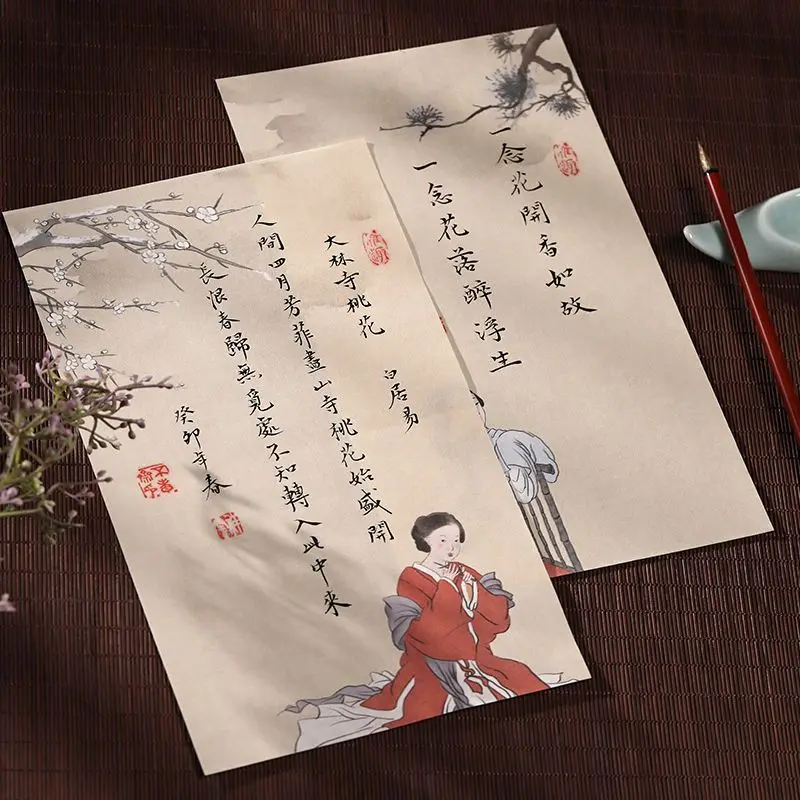 大林寺桃花
白居易
人間四月芳菲盡山寺桃花始盛開
長恨春歸無覓處不知轉入此中來
癸卯年春
一念花開香如故
一念花落醉浮生